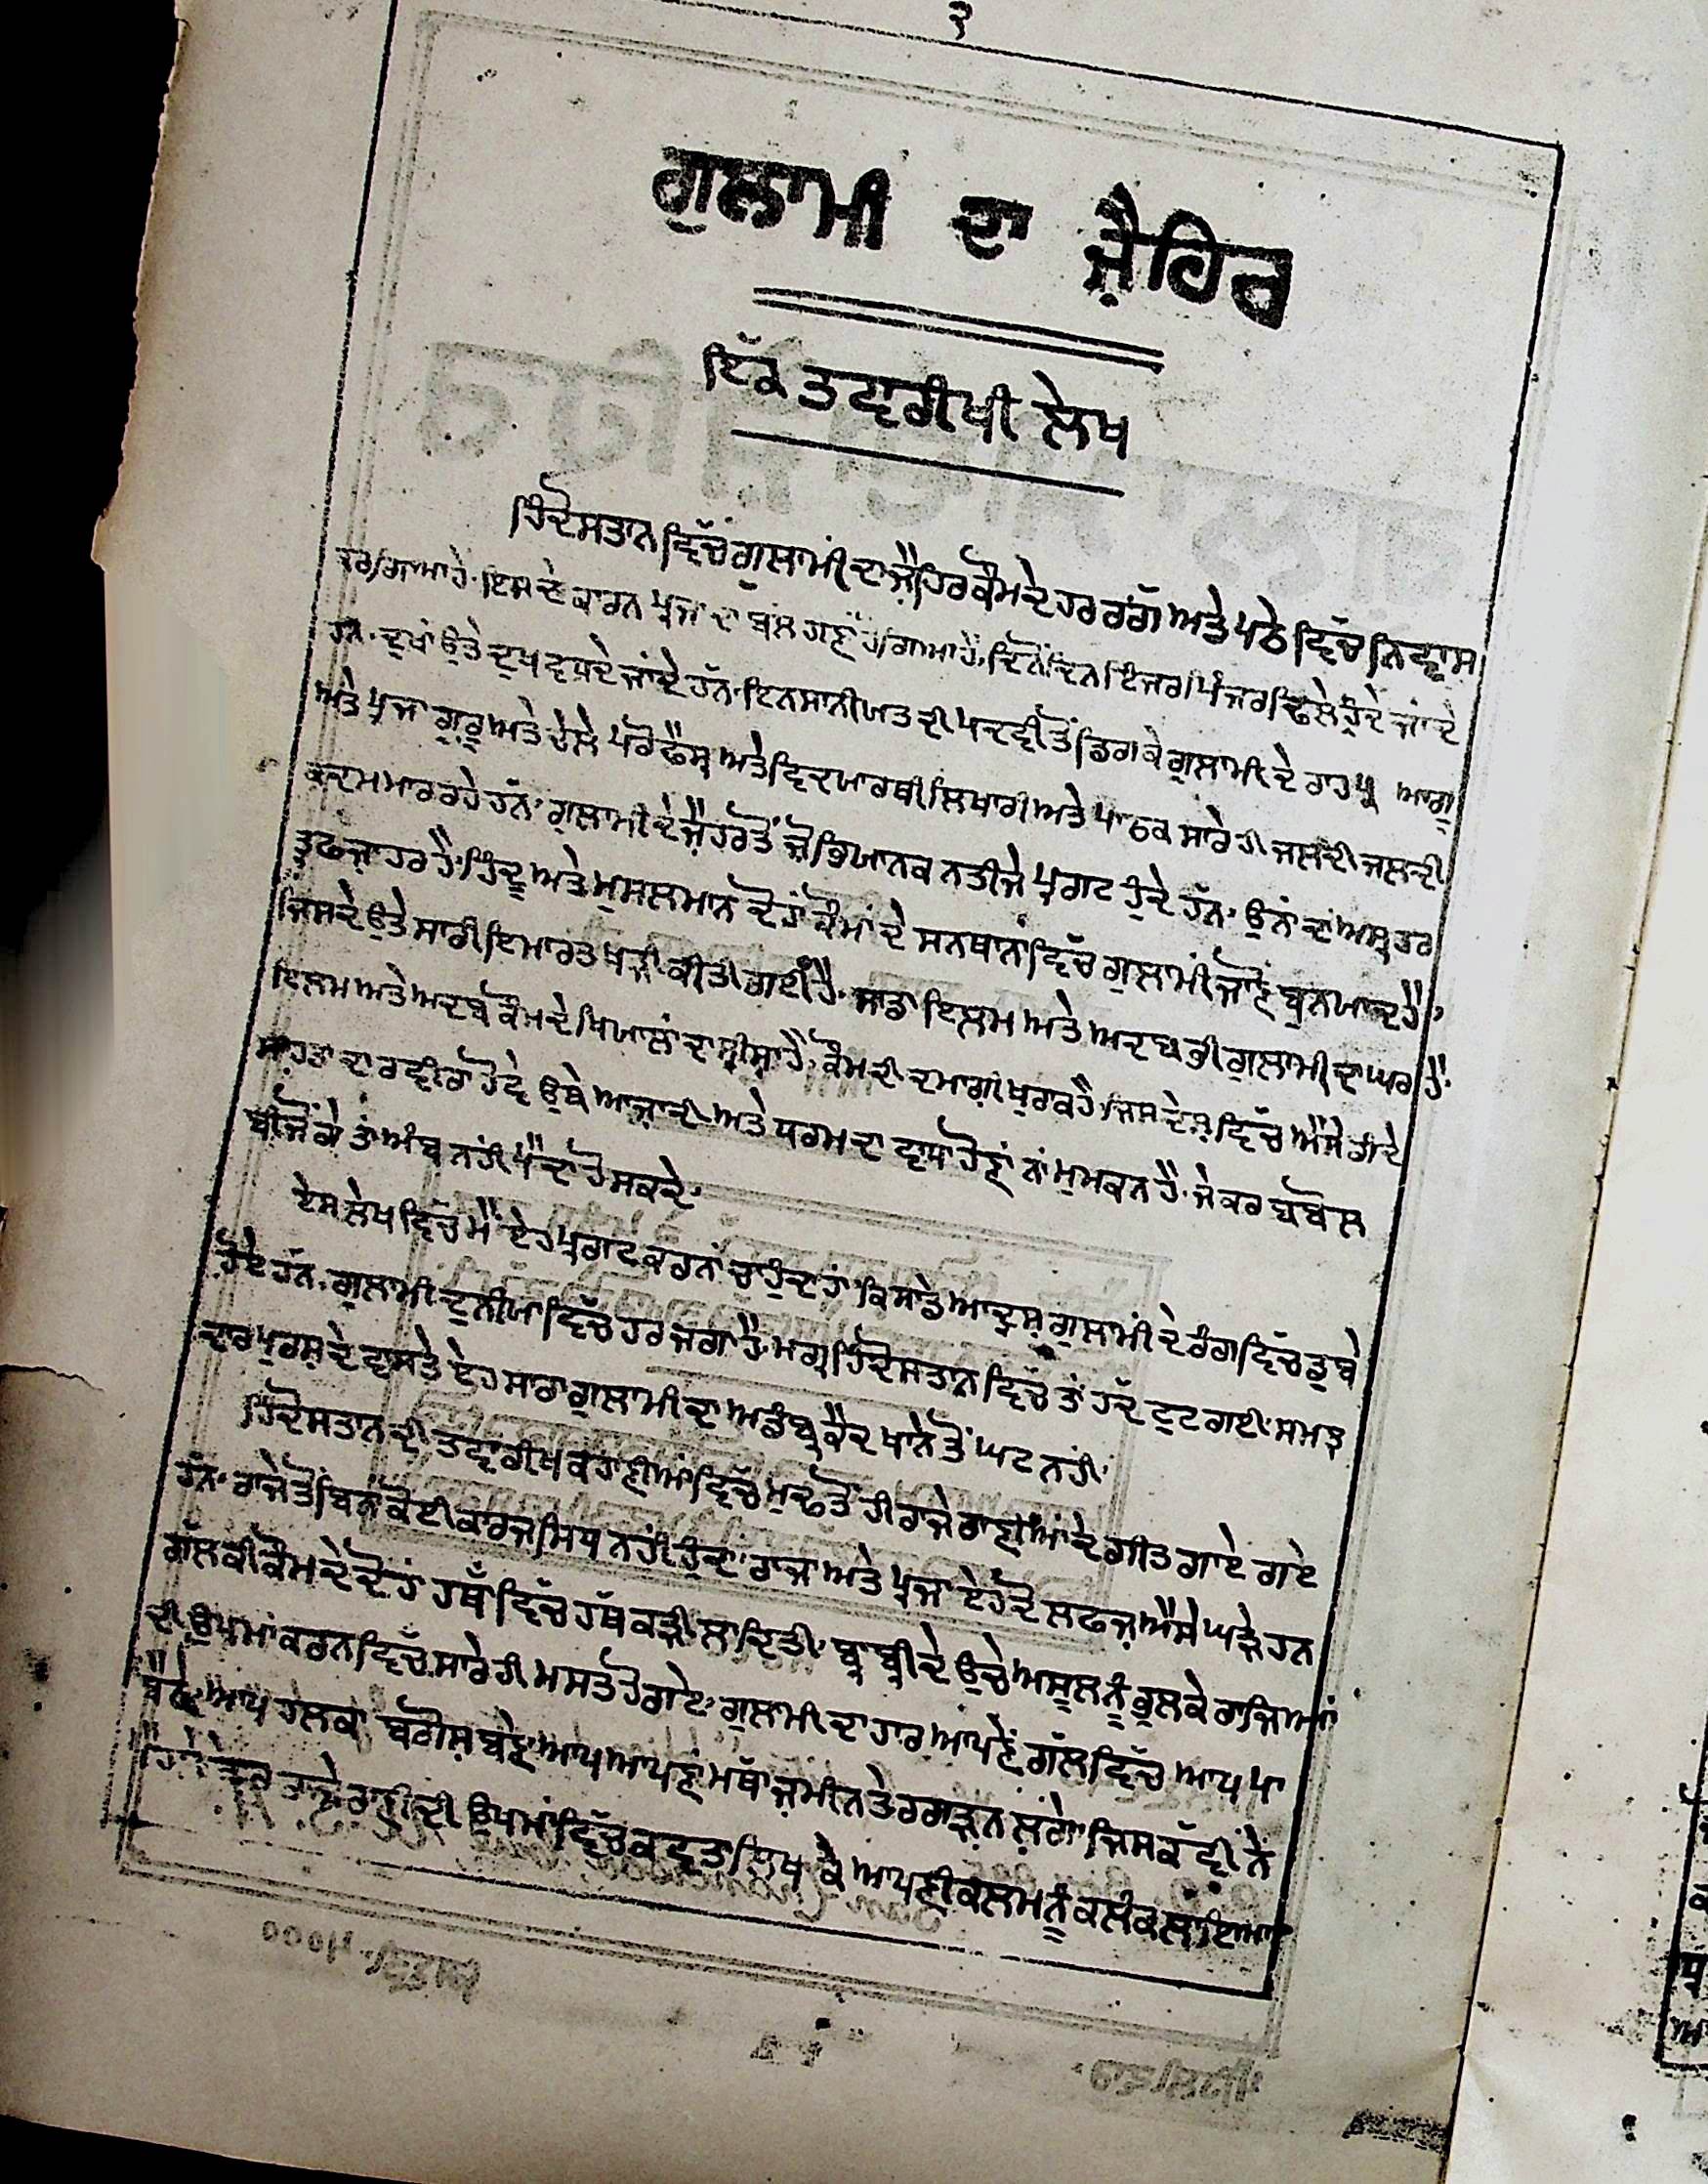 ੨
ਗੁਲਾਮੀ ਦਾ ਜ਼ੈਹਿਰ
ਇੱਕ ਤਵਾਰੀਖੀ ਲੇਖ
ਹਿੰਦੋਸਤਾਨ ਵਿੱਚ ਗੁਲਾਮੀ ਦਾ ਜ਼ੈਹਿਰ ਕੌਮ ਦੇ ਹਰ ਰਗੱ ਅਤੇ ਪਠੇ ਵਿੱਚ ਨਿਵਾਸ
ਕਰ ਗਿਆ ਹੈ. ਇਸ ਦੇ ਕਾਰਨ ਪ੍ਰਜਾ ਦਾ ਬਲ ਹੋ ਗਿਆ ਹੈ. ਦਿਨੋਂ ਦਿਨ ਇੰਜਰ ਪਿੰਜਰ ਢਿਲੇ ਹੁੰਦੇ ਜਾਂਦੇ
ਹਨ. ਦੁਖਾਂ ਉਤੇ ਦੁਖ ਵਧਦੇ ਜਾਂਦੇ ਹੱਨ. ਇਨਸਾਨੀਯਤ ਦੀ ਪਦਵੀ ਤੋਂ ਡਿਗ ਕੇ ਗੁਲਾਮੀ ਦੇ ਰਾਹ ਪੁਰ ਆਗੂ
ਅਤੇ ਪ੍ਰਜਾ ਗੁਰੂ ਅਤੇ ਚੇਲੇ ਪਰੋਫੈਸਰ ਅਤੇ ਵਿਦਯਾਰਥੀ ਲਿਖਾਰੀ ਅਤੇ ਪਾਠਕ ਸਾਰੇ ਹੀ ਜਲਦੀ ਜਲਦੀ
ਕਦਮ ਮਾਰ ਰਹੇ ਹੱਨ. ਗੁਲਾਮੀ ਦੇ ਜ਼ੈਹਰ ਤੋਂ ਜੋ ਭਿਯਾਨਕ ਨਤੀਜੇ ਪ੍ਰਗਟ ਹੁੰਦੇ ਹੱਨ. ਉਨਾਂ ਦਾ ਅਸਰ ਹਰ
ਤ੍ਰਫ ਜ਼ਾਹਰ ਹੈ. ਹਿੰਦੂ ਅਤੇ ਮੁਸਲਮਾਨ ਦੋਹਾਂ ਕੌਮਾਂ ਦੇ ਸਨਬਾਨਾਂ ਵਿੱਚ ਗੁਲਾਮੀ ਜੇਹੀ ਬੁਨਯਾਦ ਹੈ.
ਜਿਸਦੇ ਉਤੇ ਸਾਰੀ ਇਮਾਰਤ ਖੜੀ ਕੀਤੀ ਗਈ ਹੈ. ਸਾਡਾ ਇਲਮ ਅਤੇ ਅਦਬ ਭੀ ਗੁਲਾਮੀ ਦਾ ਘਰ ਹੈ.
ਇਲਮ ਅਤੇ ਅਦਬ ਕੌਮ ਦੇ ਖਿਯਾਲਾਂ ਦਾ ਸ਼ੀਸ਼ਾ ਹੈ. ਕੌਮ ਦੀ ਦਮਾਗ਼ੀ ਖੁਰਾਕ ਹੈ ਜਿਸ ਦੇਸ਼ ਵਿੱਚ ਐਸੇ ਗੰਦੇ
ਦਾ ਵਤੀਰਾ ਹੋਵੇ ਉਥੇ ਆਜ਼ਾਦੀ ਅਤੇ ਧਰਮ ਦਾ ਵਾਧਾ ਹੋਣਾ ਨਾਂ ਮੁਮਕਨ ਹੈ. ਜੇਕਰ ਬਬੋਲ
ਬੀਜੋਂਗੇ ਤਾਂ ਅੰਬ ਨਹੀਂ ਪੈਦਾ ਹੋ ਸਕਦੇ.
ਏਸ ਲੇਖ ਵਿੱਚ ਮੈਂ ਏਹ ਪ੍ਰਗਟ ਕਰਨਾਂ ਚਾਹੁੰਦਾ ਹਾਂ ਕਿ ਸਾਡੇ ਆਦ੍ਰਸ਼ ਗੁਲਾਮੀ ਦੇ ਰੰਗ ਵਿੱਚ ਡੁਬੇ
ਹੋਏ ਹੱਨ. ਗੁਲਾਮੀ ਦੁਨੀਯਾ ਵਿੱਚ ਹਰ ਜਗਾ ਹੈ. ਮਗਰ ਹਿੰਦੋਸਤਾਨ ਵਿੱਚ ਤਾਂ ਹੱਦ ਟੁਟ ਗਈ. ਸਮਝ
ਦਾਰ ਪੁਰਸ਼ ਦੇ ਵਾਸਤੇ ਏਹ ਸਾਰਾ ਗੁਲਾਮੀ ਦਾ ਅਡੰਬ੍ਰ ਕੈਦ ਖਾਨੇ ਤੋਂ ਘਟ ਨਹੀਂ.
ਹਿੰਦੋਸਤਾਨ ਦੀ ਤਵਾਰੀਖ ਕਹਾਣੀਆਂ ਵਿੱਚ ਮੁਢ ਤੋਂ ਹੀ ਰਾਜੇ ਰਾਣੀਆਂ ਦੇ ਗੀਤ ਗਾਏ ਗਏ
ਹੱਨ. ਰਾਜੇ ਤੋਂ ਬਿਨਾਂ ਕੋਈ ਕਾਰਜ ਸਿਧ ਨਹੀਂ ਹੁੰਦਾ. ਰਾਜਾ ਅਤੇ ਪ੍ਰਜਾ ਏਹ ਦੋ ਲਫਜ਼ ਐਸੇ ਘੜੇ ਹਨ
ਗੱਲ ਕੀ ਕੌਮ ਦੇ ਦੋਹਾਂ ਹਥਾਂ ਵਿੱਚ ਹੱਥ ਕੜੀ ਲਾ ਦਿਤੀ. ਬ੍ਰਾਬ੍ਰੀ ਦੇ ਉਚੇ ਅਸੂਲ ਨੂੰ ਭੁਲ ਕੇ ਰਾਜਿਆਂ
ਦੀ ਉਪਮਾਂ ਕਰਨ ਵਿੱਚ ਸਾਰੇ ਹੀ ਮਸਤ ਹੋ ਗਏ. ਗੁਲਾਮੀ ਦਾ ਹਾਰ ਆਪਣੇ ਗੱਲ ਵਿੱਚ ਆਪ ਪਾ
ਬੈਠੇ. ਆਪ ਹਲਕਾ ਬਗੋਸ਼ ਬਣੇ ਆਪ ਆਪਣਾਂ ਮੱਥਾ ਜ਼ਮੀਨ ਤੇ ਰਗੜਨ ਲਗੇ. ਜਿਸ ਕੱਵੀ ਨੇ
ਰਾਜੇ ਰਾਣੀ ਦੀ ਉਪਮਾਂ ਵਿੱਚ ਕਵਤਾ ਲਿਖ ਕੇ ਆਪਣੀ ਕਲਮ ਨੂੰ ਕਲੰਕ ਲਾਇਆ